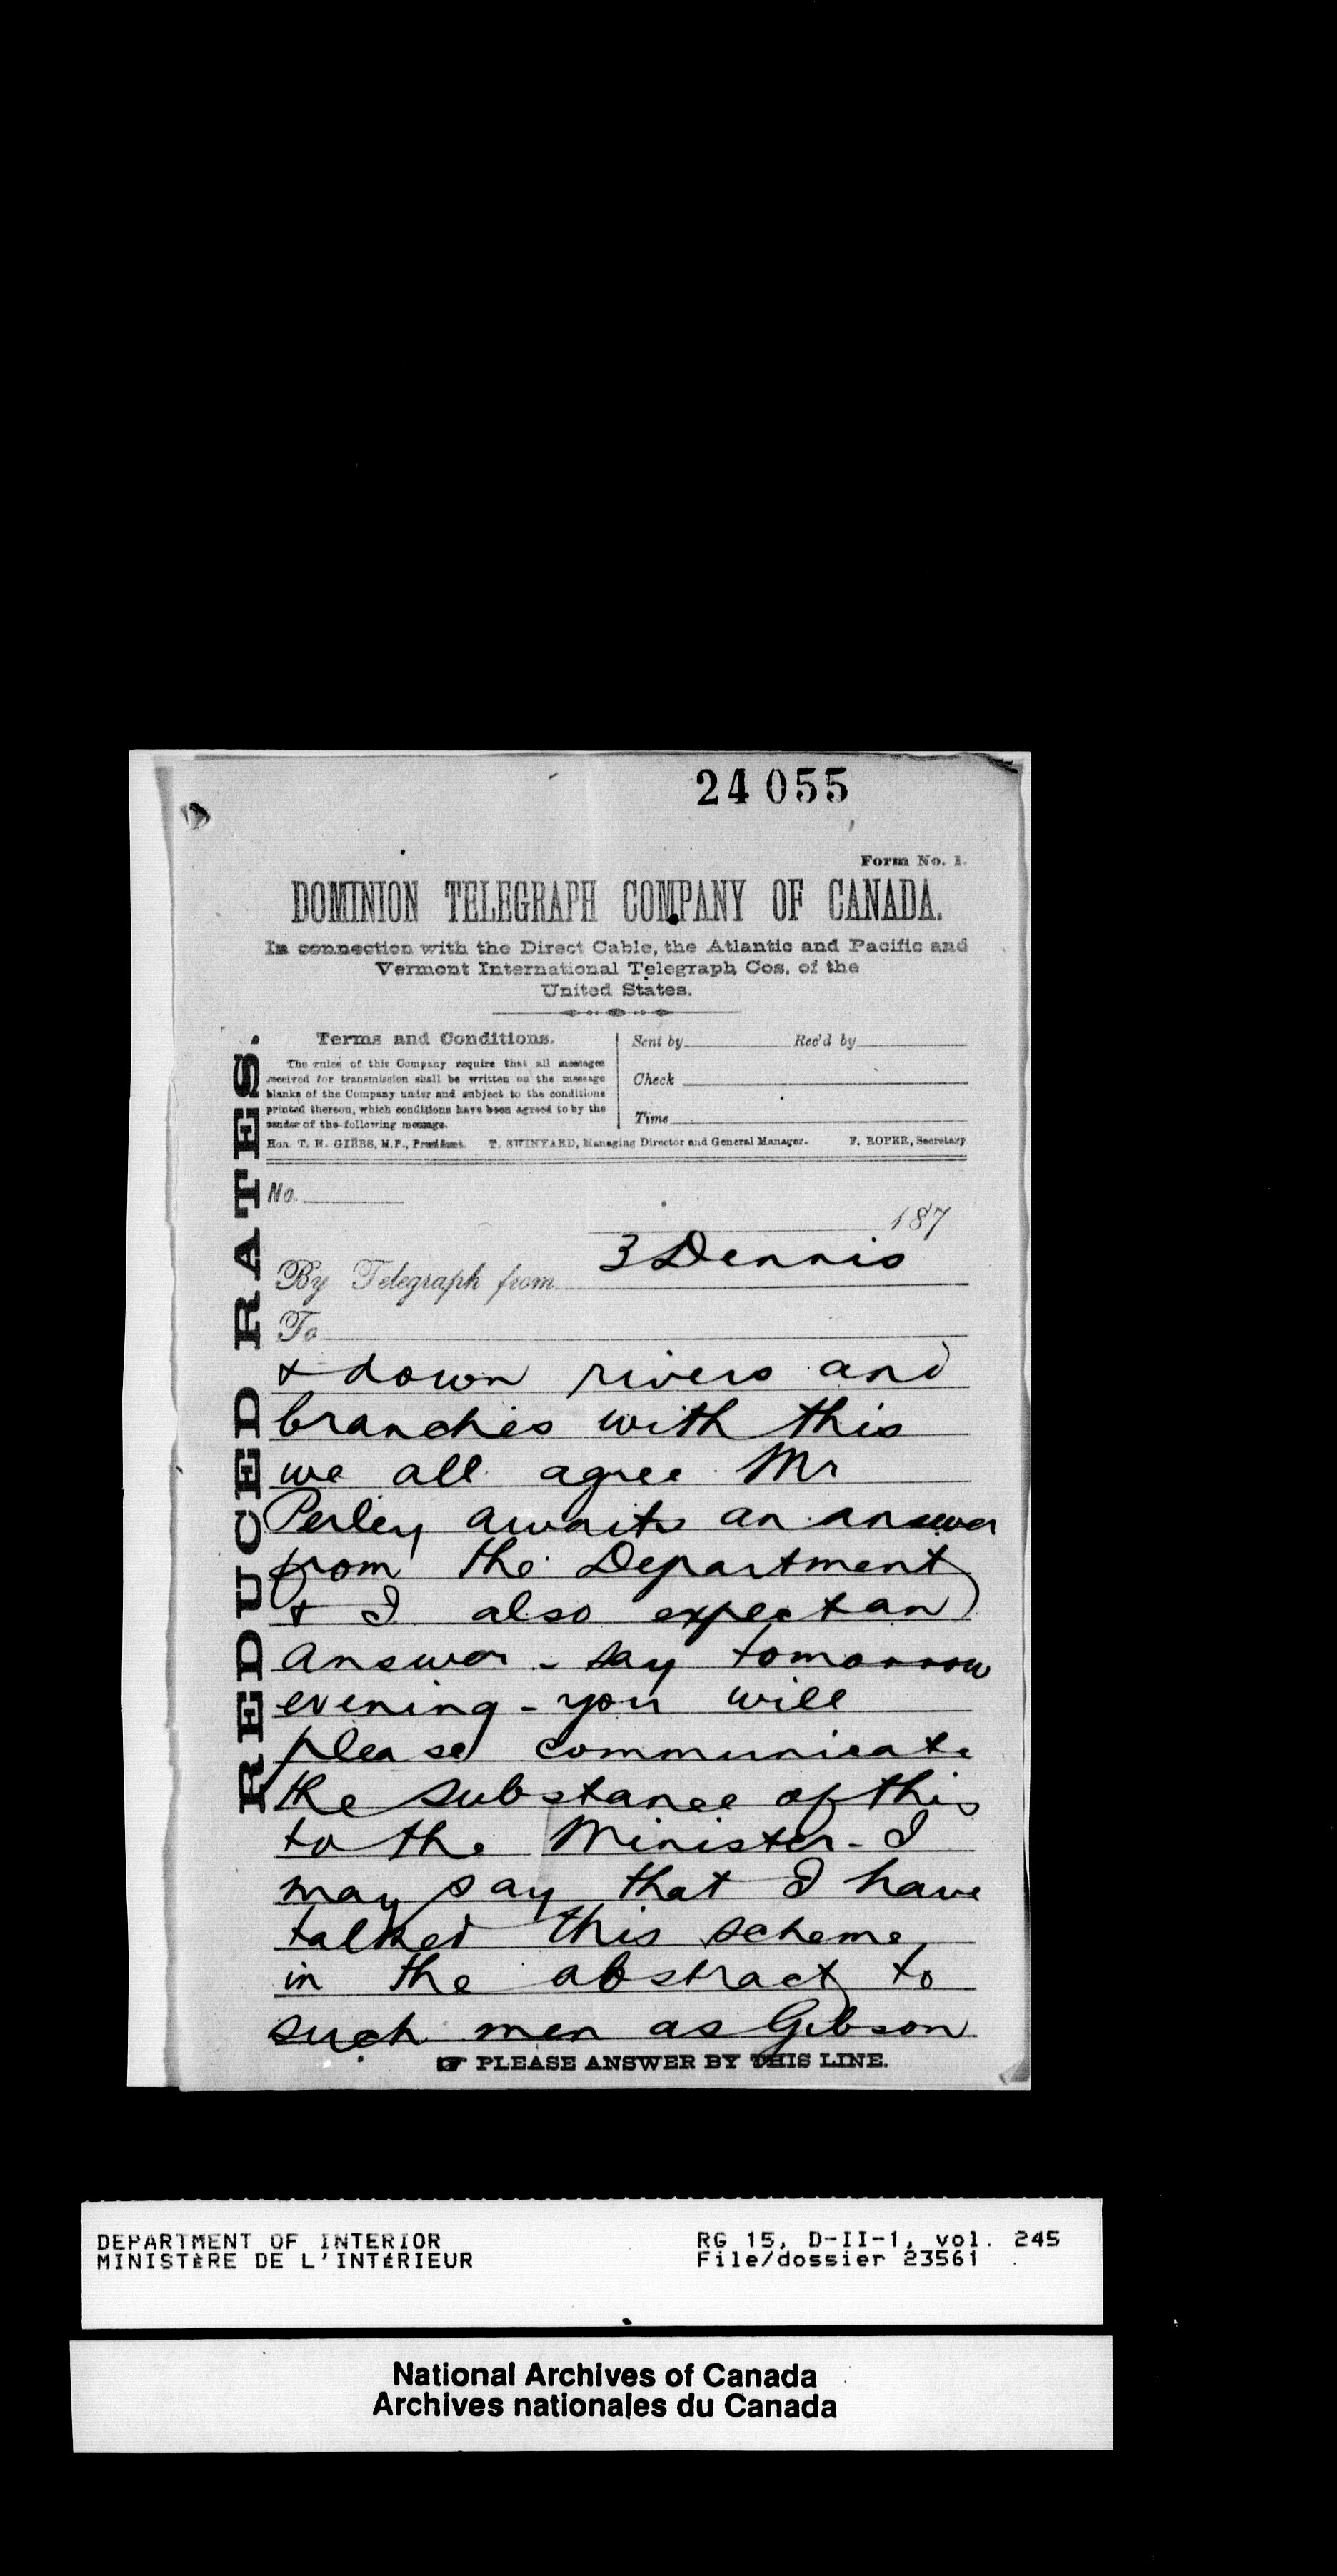 24055
Form No. 1.
DOMINION TELEGRAPH COMPANY OF CANADA.
In connection with the Direct Cable, the Atlantic and Pacific and
Vermont International Telegraph Cos. of the
United States.
REDUCED RATES.
Terms and Conditions.
The rules of this Company require that all messages
received for transmission shall be written on the message
blanks of the Company under and subject to the conditions
printed thereon, which conditions have been agreed to by the
sender of the following message.
Sent by Rec'd by
Check
Time
Hon. T. N. GIBBS, M.P., President. T. SWINYARD, Managing Director and General Manager. F. ROPER, Secretary.
No.
187
By Telegraph from 3 Dennis
To
& down rivers and
branches with this
we all agree Mr
Perley awaits an answer
from the Department
& I also expect an
answer - say tomorrow
evening - you will
please communicate
the substance of this
to the Minister - I
may say that I have
talked this scheme
in the abstract to
such men as Gibson
☞ PLEASE ANSWER BY THIS LINE.
DEPARTMENT OF INTERIOR RG 15, D-II-1, vol. 245
MINISTÈRE DE L'INTÉRIEUR File/dossier 23561
National Archives of Canada
Archives nationales du Canada